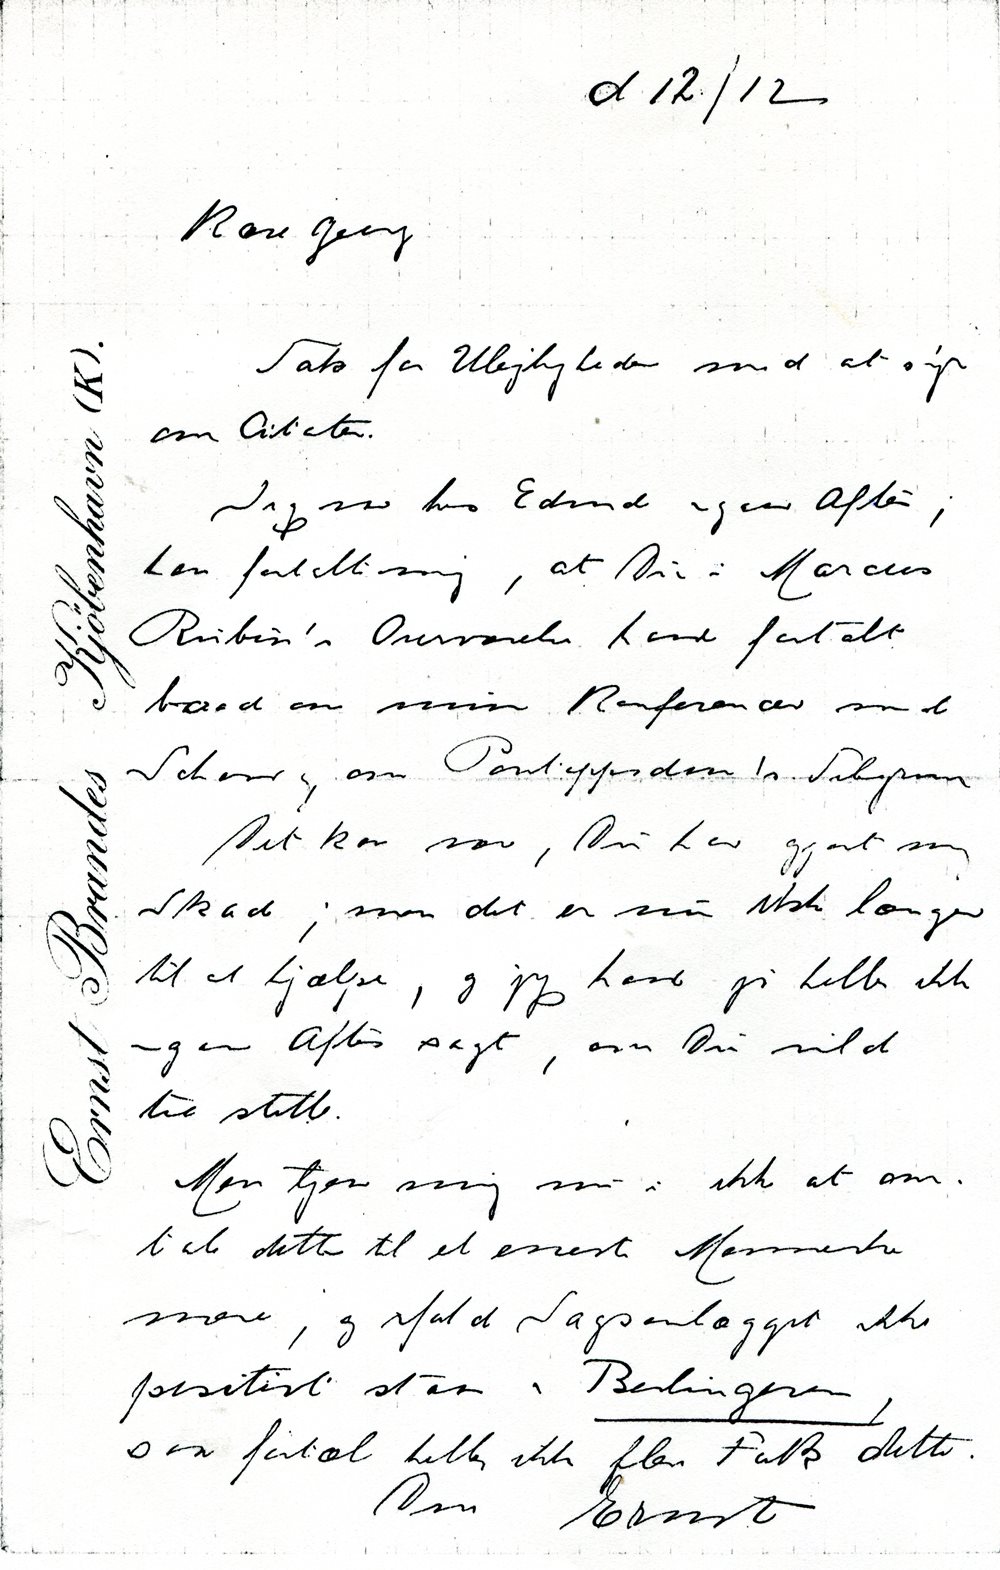 d 12/12
Kære Georg
Ernst Brandes Kjöbenhavn (K).
Tak for Ulejligheden med at sige
om Citatet.
Jeg var hos Edvard igaar Aftes;
han fortalte mig, at Du i Marcus
Rubin's Overværelse havde fortalt
baade om min Konference med
Schou og om Pontoppidan's Telegram
Det kan være, Du har gjort mig
Skade; men det er nu ikke længer
til at hjælpe, og jeg havde jo heller ikke
igaar Aftes sagt, om Du vilde
tie stille.
Men tjen mig nu i ikke at om-
tale dette til et eneste Menneske
mere, og ifald Sagsanlægget ikke
positivt staar i Berlingeren,
saa fortæl heller ikke flere Folk dette.
Din Ernst